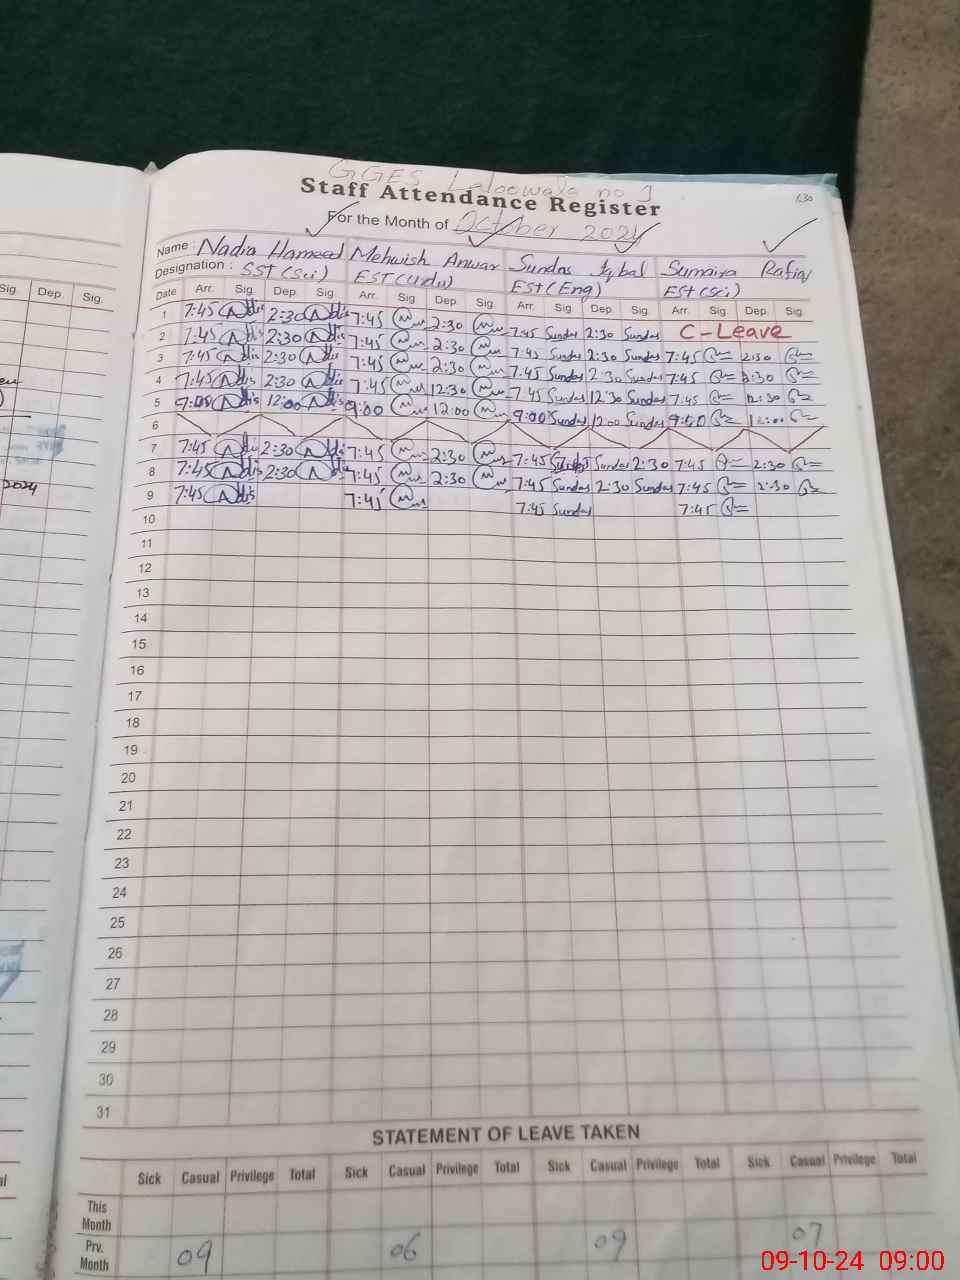 GGES Laloowala no 1
Staff Attendance Register
130
For the Month of October 2024
Name : Nadia Hameed Mehwish Anwar Sundas Iqbal Sumaira Rafiq
Designation : SST (Sci) EST (Urdu) EST (Eng) EST (Sci)
Sig. Dep. Sig.
Date Arr. Sig. Dep. Sig. Arr. Sig. Dep. Sig. Arr. Sig. Dep. Sig. Arr. Sig. Dep. Sig.
1 7:45 2:30 7:45 2:30 7:45 Sundas 2:30 Sundas C-Leave
2 7:45 2:30 7:45 2:30 7:45 Sundas 2:30 Sundas 7:45 2:30
3 7:45 2:30 7:45 2:30 7:45 Sundas 2:30 Sundas 7:45 2:30
4 7:45 2:30 7:45 12:30 7:45 Sundas 12:30 Sundas 7:45 12:30
5 9:00 12:00 9:00 12:00 9:00 Sundas 12:00 Sundas 9:00 12:00
6
7 7:45 2:30 7:45 2:30 7:45 Sundas 2:30 7:45 2:30
8 7:45 2:30 7:45 2:30 7:45 Sundas 2:30 Sundas 7:45 2:30
9 7:45 7:45 7:45 Sundas 7:45
2024
10
11
12
13
14
15
16
17
18
19
20
21
22
23
24
25
26
27
28
29
30
31
STATEMENT OF LEAVE TAKEN
Sick Casual Privilege Total Sick Casual Privilege Total Sick Casual Privilege Total Sick Casual Privilege Total
This Month
Prv. Month 09 06 09 07
09-10-24 09:00